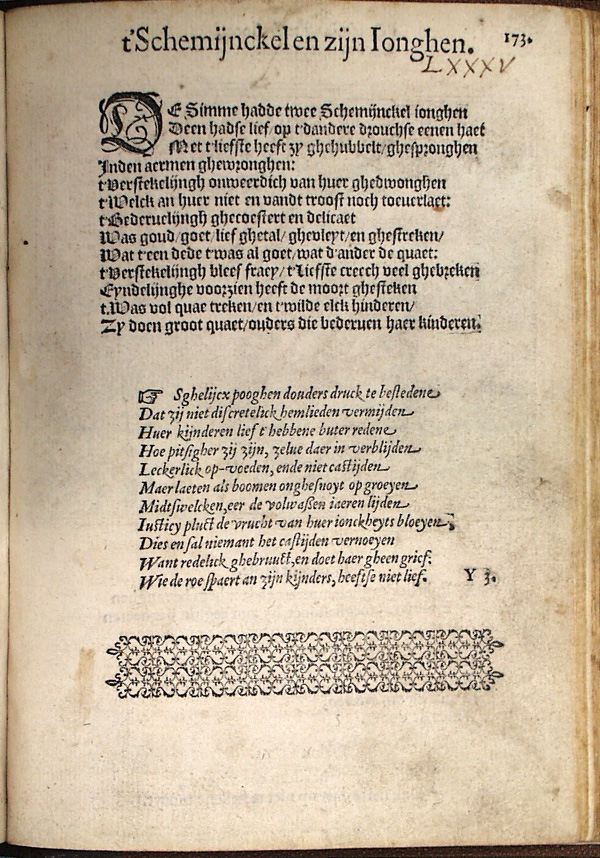 t'Schemijnckel en zijn Ionghen. 173.
LXXXV
DE Simme hadde twee Schemijnckel ionghen
Deen hadse lief op t'dandere drouchse eenen haet
Met t'liefste heeft zy ghehubbelt/ghespronghen
Inden aermen ghewronghen:
t'Verstekelijngh onweerdich van huer ghedwonghen
t'Welck an huer niet en vandt troost noch toeuerlaet:
t'Bederuelijngh ghecoestert en delicaet
Was goud/goet/lief ghetal/ghevleyt/en ghestreken/
Wat t'een dede t'was al goet/wat d'ander de quaet:
t'Verstekelijngh bleef fraey/t'Liefste creech veel ghebreken
Eyndelijnghe voorzien heeft de moort ghesteken
t.Was vol quae treken/en t'wilde elck hinderen/
Zy doen groot quaet/ouders die bederuen haer kinderen.
☞ Sghelijcx pooghen douders druck te bestedene
Dat zij niet discretelick hemlieden vermijden
Huer kijnderen lief t'hebbene buter redene
Hoe pitsigher zij zijn, zelue daer in verblijden
Leckerlick op-voeden, ende niet castijden
Maer laeten als boomen onghesnoyt op groeyen
Midtswelcken, eer de volwaßen iaeren lijden
Iusticy pluct de vrucht van huer ionckheyts bloeyen,
Dies en sal niemant het castijden vernoeyen
Want redelick ghebruuct, en doet haer gheen grief.
Wie de roe spaert an zijn kijnders, heeftse niet lief. Y 3.